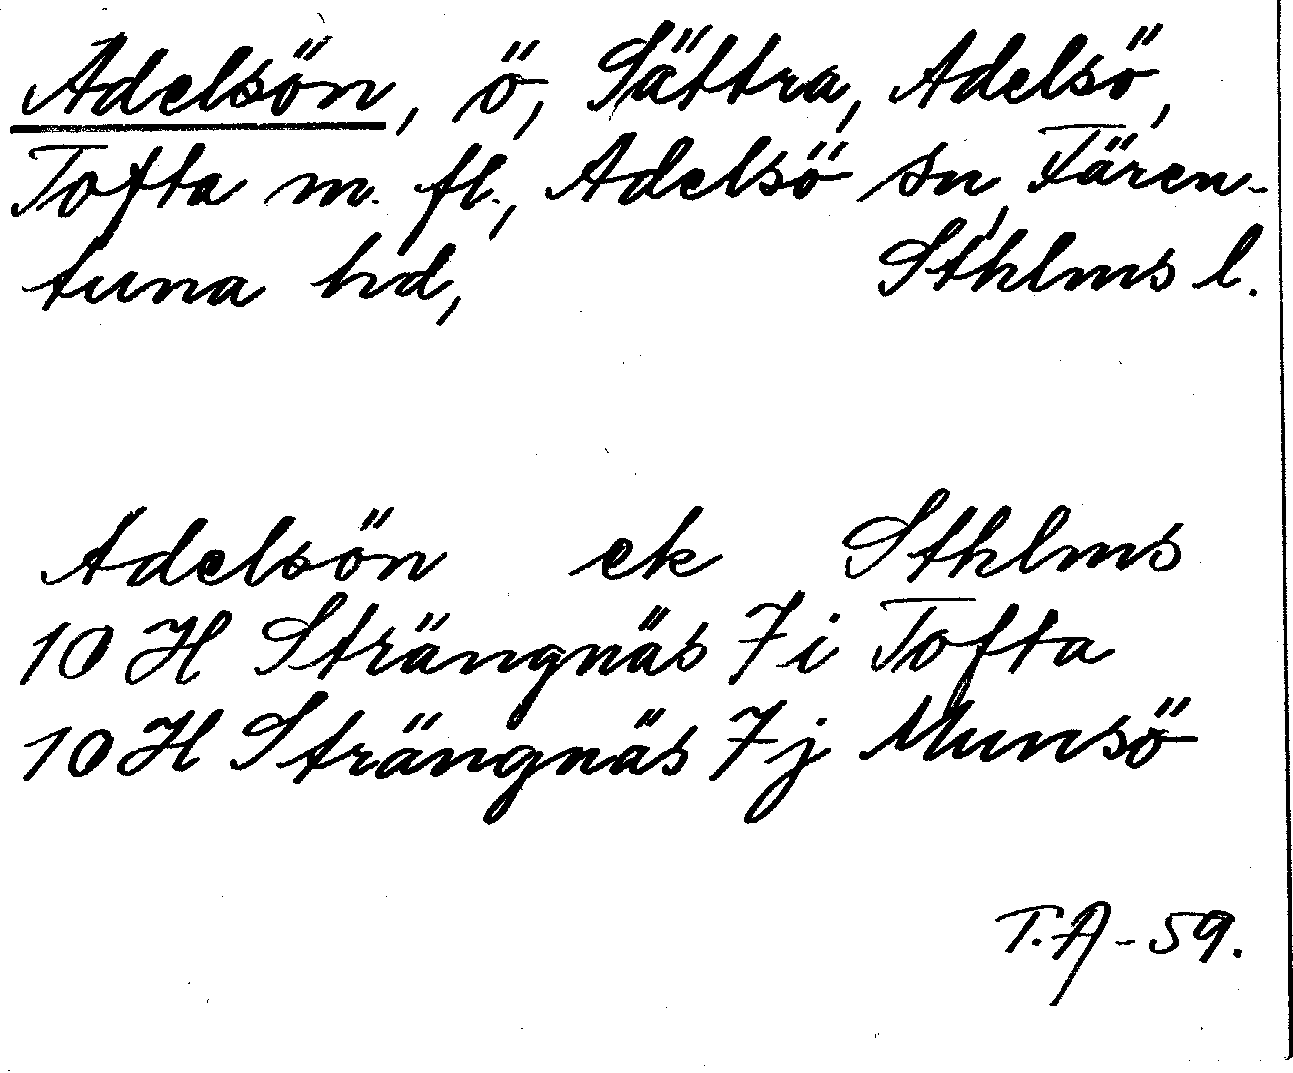 Adelsön, ö, Sättra, Adelsö,
Tofta m. fl., Adelsö sn, Fären-
tuna hd, Sthlms l.
Adelsön ek Sthlms
10 H Strängnäs 7 i Tofta
10 H Strängnäs 7 j Munsö
T.A-59.